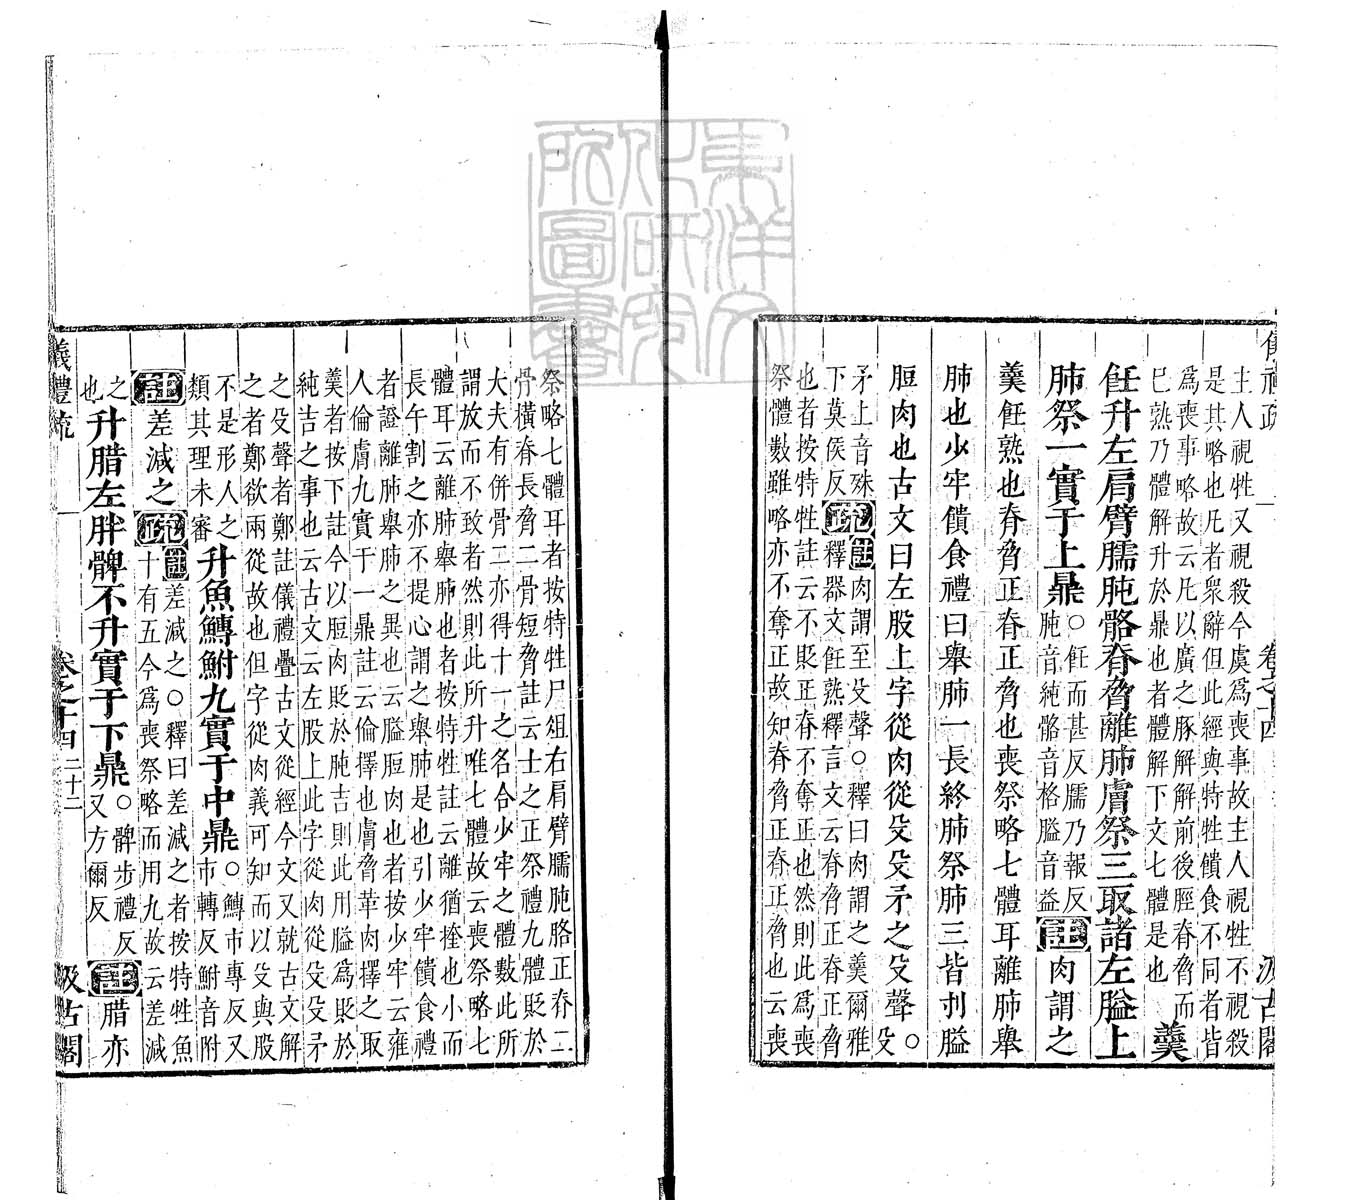 主人視牲又視殺今虞爲喪事故主人視牲不視殺
是其略也凡者衆辭但此經與特牲饋食不同者皆
爲喪事略故云凡以廣之豚解解前後脛脊脅而
巳熟乃體解升於鼎也者體解下文七體是也
羹
飪升左肩臂臑肫骼脊脅離肺膚祭三取諸左膉上
肺祭一實于上鼎
○飪而甚反臑乃報反
肫音純骼音格膉音益
註肉謂之
羹飪熟也脊脅正脊正脅也喪祭略七體耳離肺舉
肺也少牢饋食禮曰舉肺一長終肺祭肺三皆刌膉
脰肉也古文曰左股上字從肉從殳殳矛之殳聲○殳
矛上音殊
下莫侯反
疏註肉謂至殳聲○釋曰肉謂之羹爾雅
釋器文飪熟釋言文云脊脅正脊正脅
也者按特牲註云不貶正脊不奪正也然則此爲喪
祭體數雖略亦不奪正故知脊脅正脊正脅也云喪
祭略七體耳者按特牲尸俎右肩臂臑肫胳正脊二
骨橫脊長脅二骨短脅註云士之正祭禮九體貶於
大夫有併骨二亦得十一之名合少牢之體數此所
謂放而不致者然則此所升唯七體故云喪祭略七
體耳云離肺舉肺也者按特牲註云離猶㨔也小而
長午割之亦不提心謂之舉肺是也引少牢饋食禮
者證離肺舉肺之異也云膉脰肉也者按少牢云雍
人倫膚九實于一鼎註云倫擇也膚脅革肉擇之取
羹者按下註今以脰肉貶於肫吉則此用膉爲貶於
純吉之事也云古文云左股上此字從肉從殳殳矛
之殳聲者鄭註儀禮疊古文從經今文又就古文解
之者鄭欲兩從故也但字從肉義可知而以殳與股
不是形人之
類其理未審
升魚鱄鮒九實于中鼎
○鱄市專反又
市轉反鮒音附
註差減之疏註差減之○釋曰差減之者按特牲魚
十有五今爲喪祭略而用九故云差減
之
也
升腊左胖髀不升實于下鼎
○髀步禮反
又方爾反
註腊亦
儀禮疏
卷之十四
二十二
汲古閣